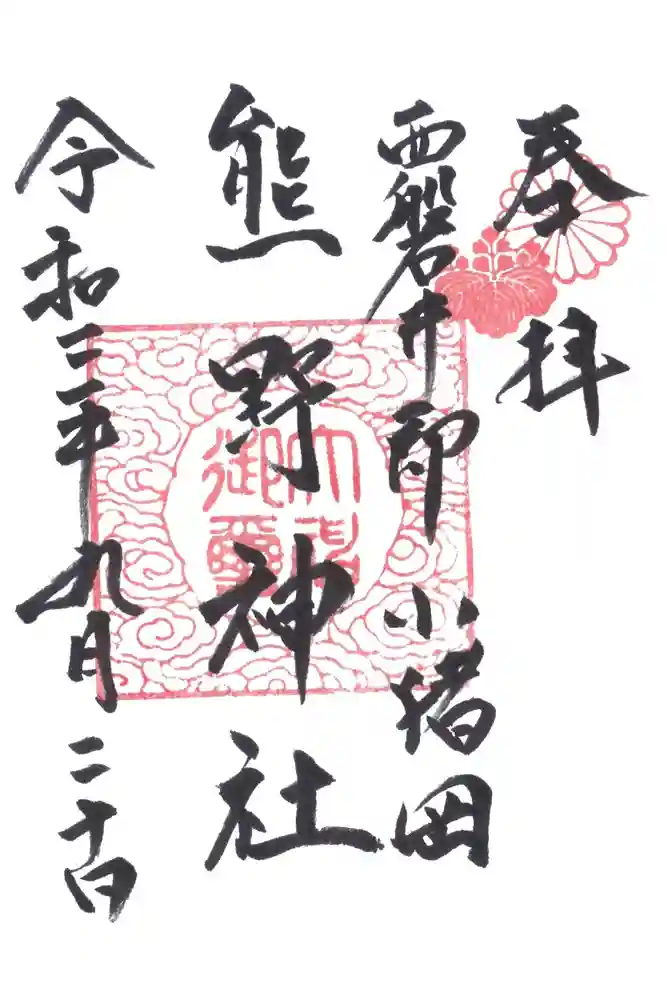 奉拝
西磐井郡 小猪岡
熊野神社
令和三年九月二十日